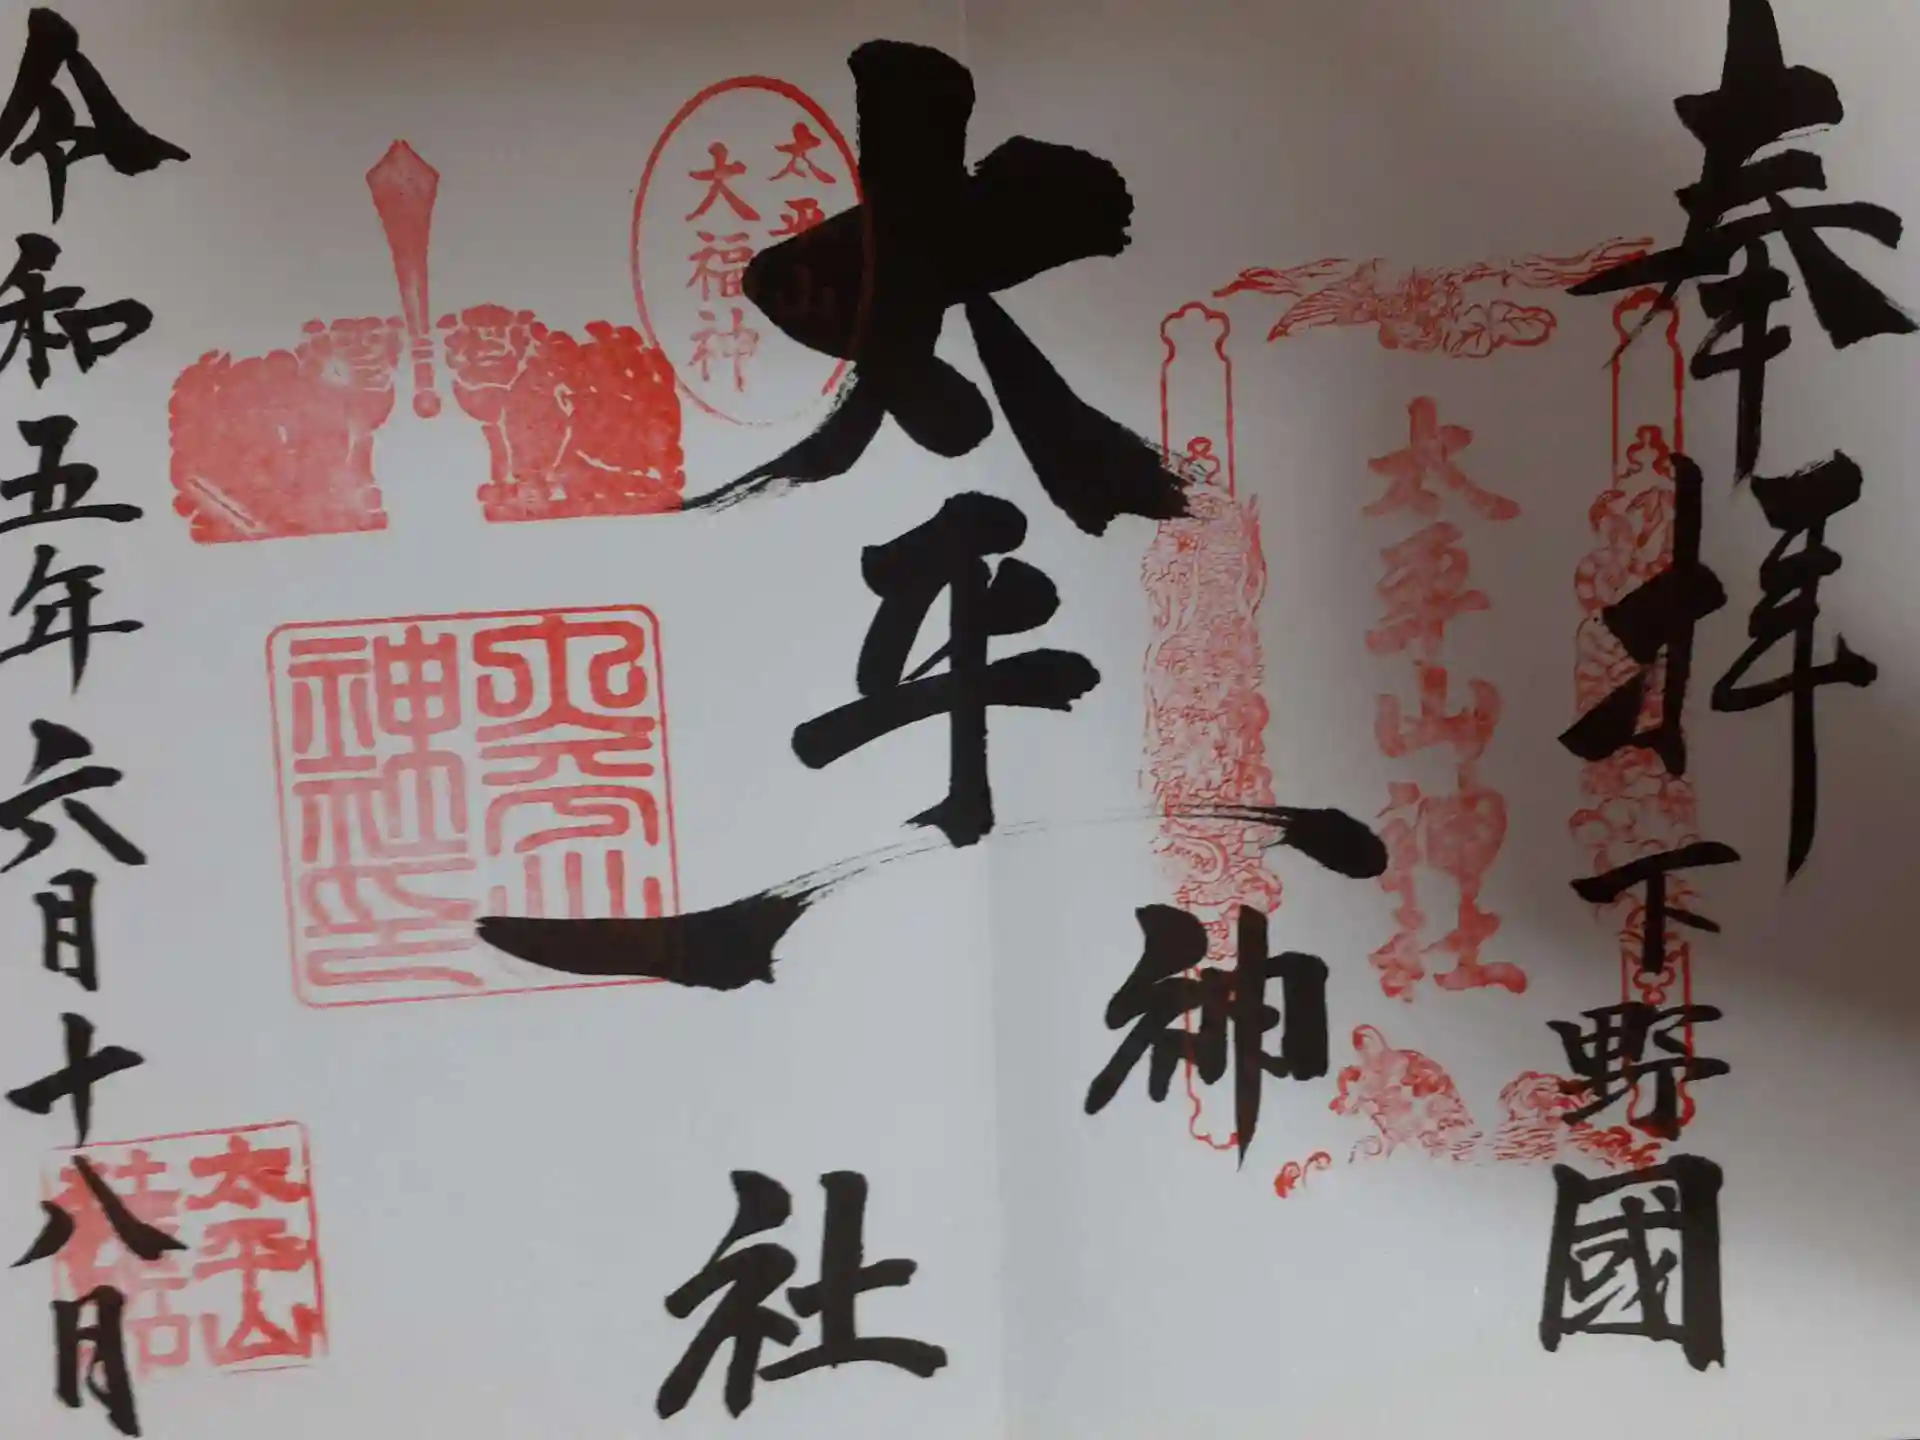 奉拝
下野國
太平山神社
太平山神社
太平山
大福神
太平山
神社印
令和五年六月十八日
太平山